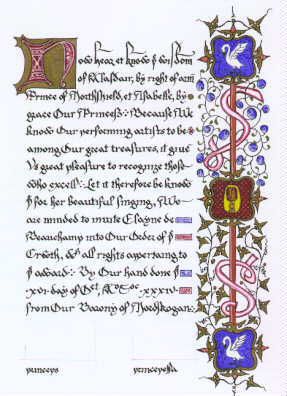 Now hear et know þ wisdom
of Alasdair, by right of arm
Prince of Northshield, et Ysabelle, by
grace Our Princess: Because We
know Our performing artists to be
among Our great treasures, it giveþ
Vs great pleasure to recognize those
who excell: Let it therefore be know
þ for her beautiful singing, We
are minded to invite Elayne de
Beauchamp into Our Order of þ
Crwth, & all rights apertang to
þ award: By Our hand done þ
xvi day of Oct, A.S. xxxiv
from Our Barony of Nordskogen:
princeps
princepessa